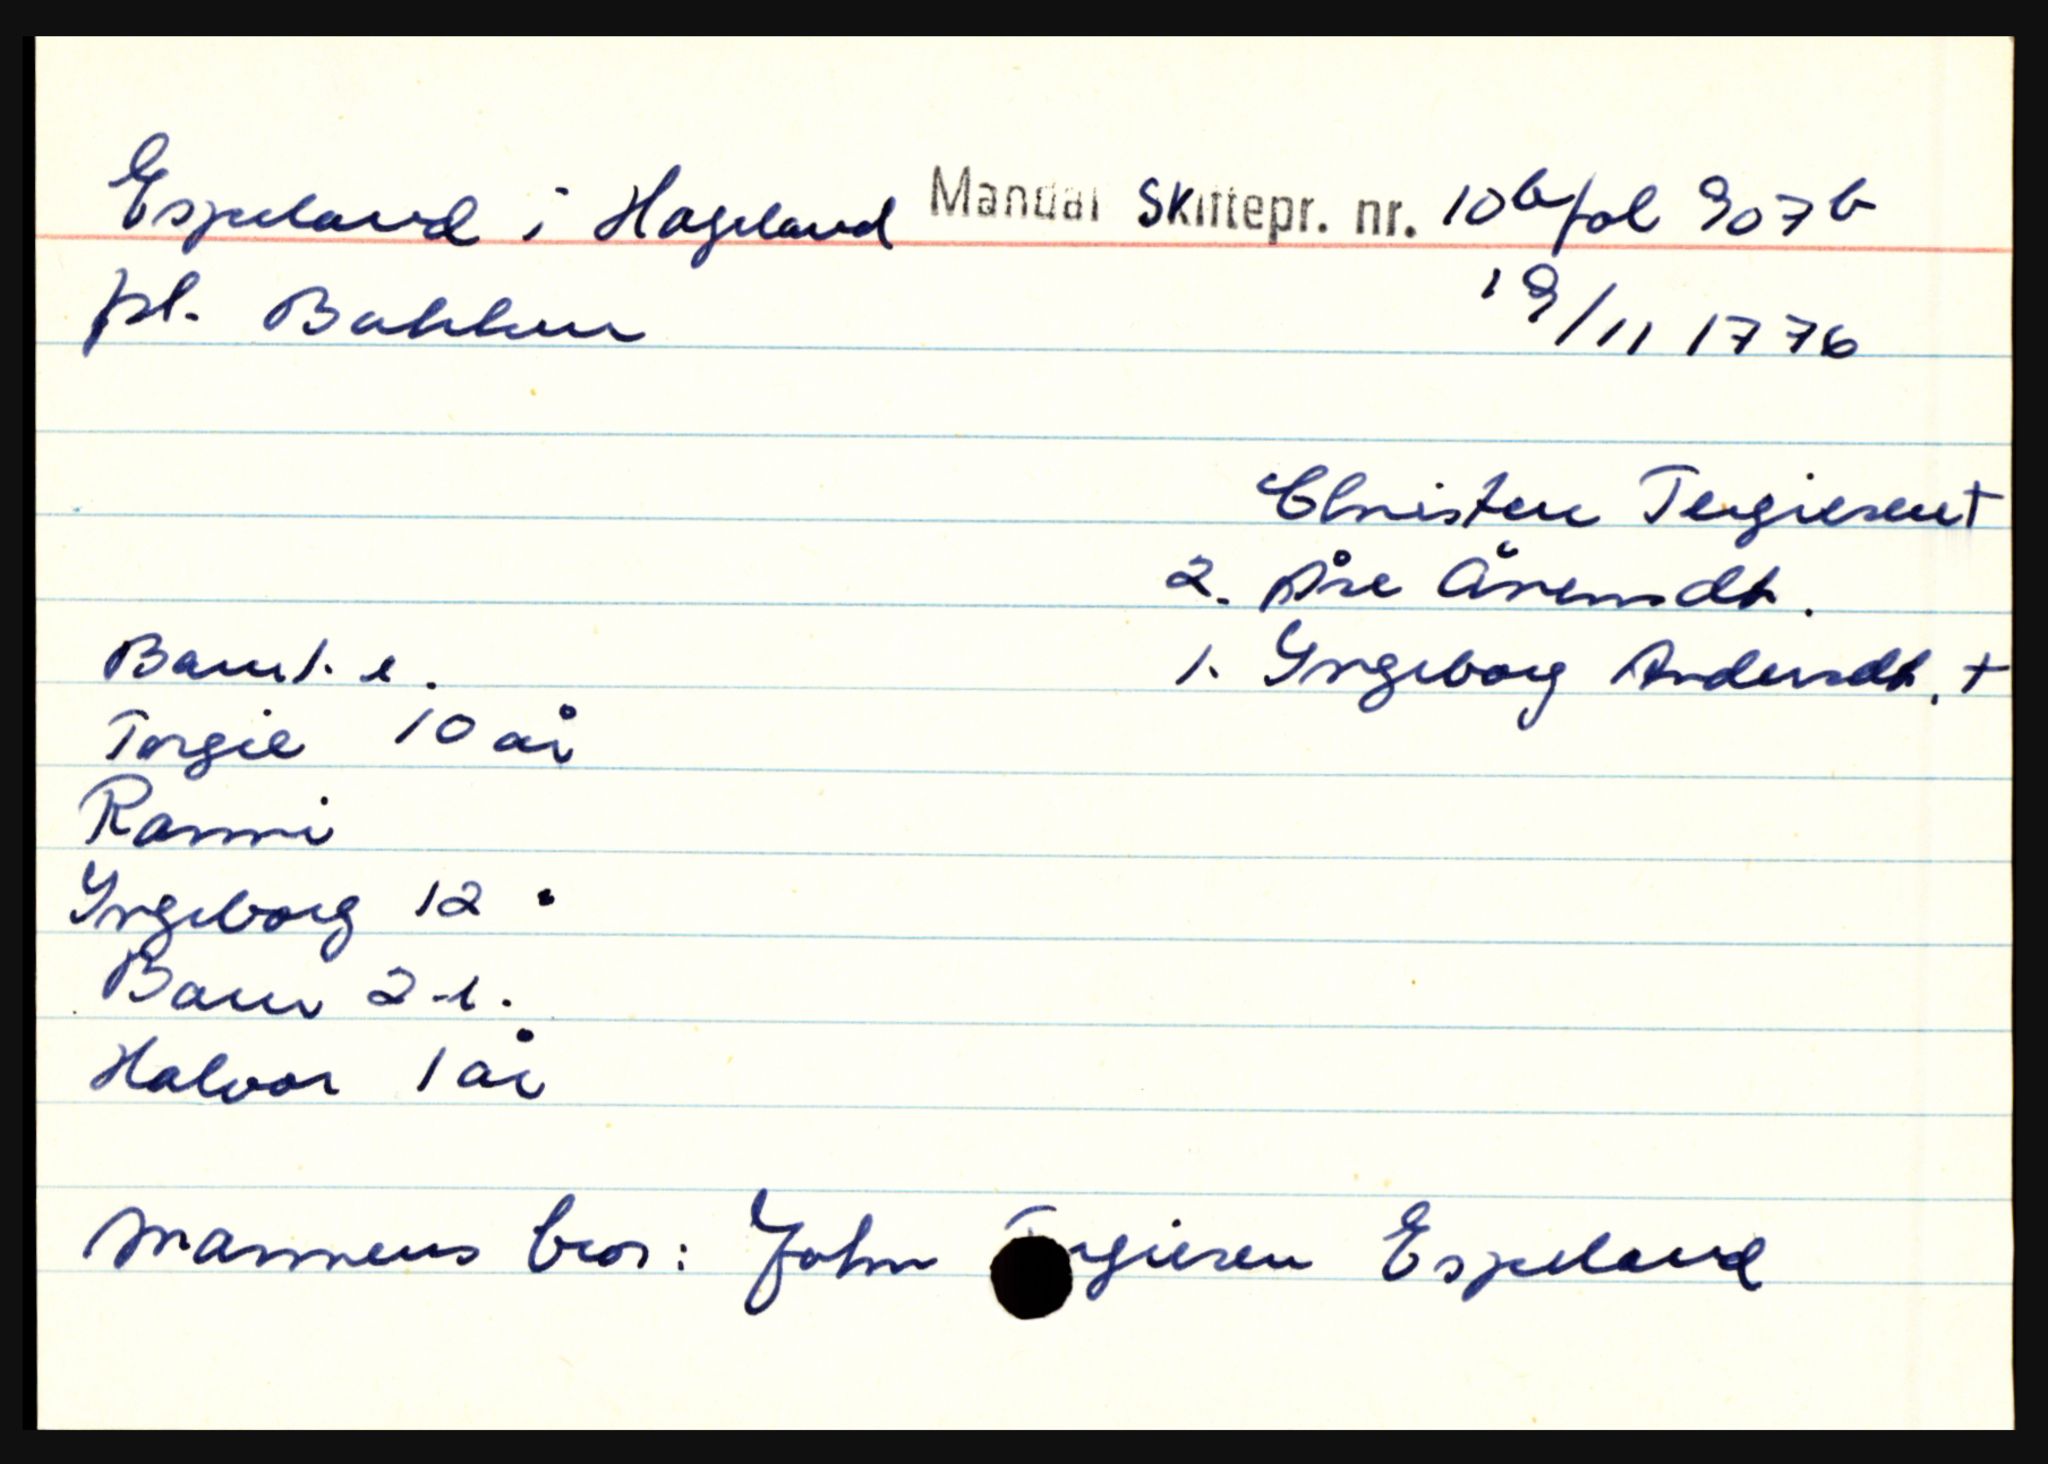 Espeland i Hageland Mandal Skiftepr. nr. 10b fol 907b
pl. Bakken 19/11 1776
Christen Tergiesen +
2. Åse Årensdt.
Barn 1. e. 1. Yngeborg Andersdt. +
Torgie 10 år
Ranni
Yngeborg 12 "
Barn 2. e.
Halvor 1 år
Mannens bror: John Tergiesen Espeland